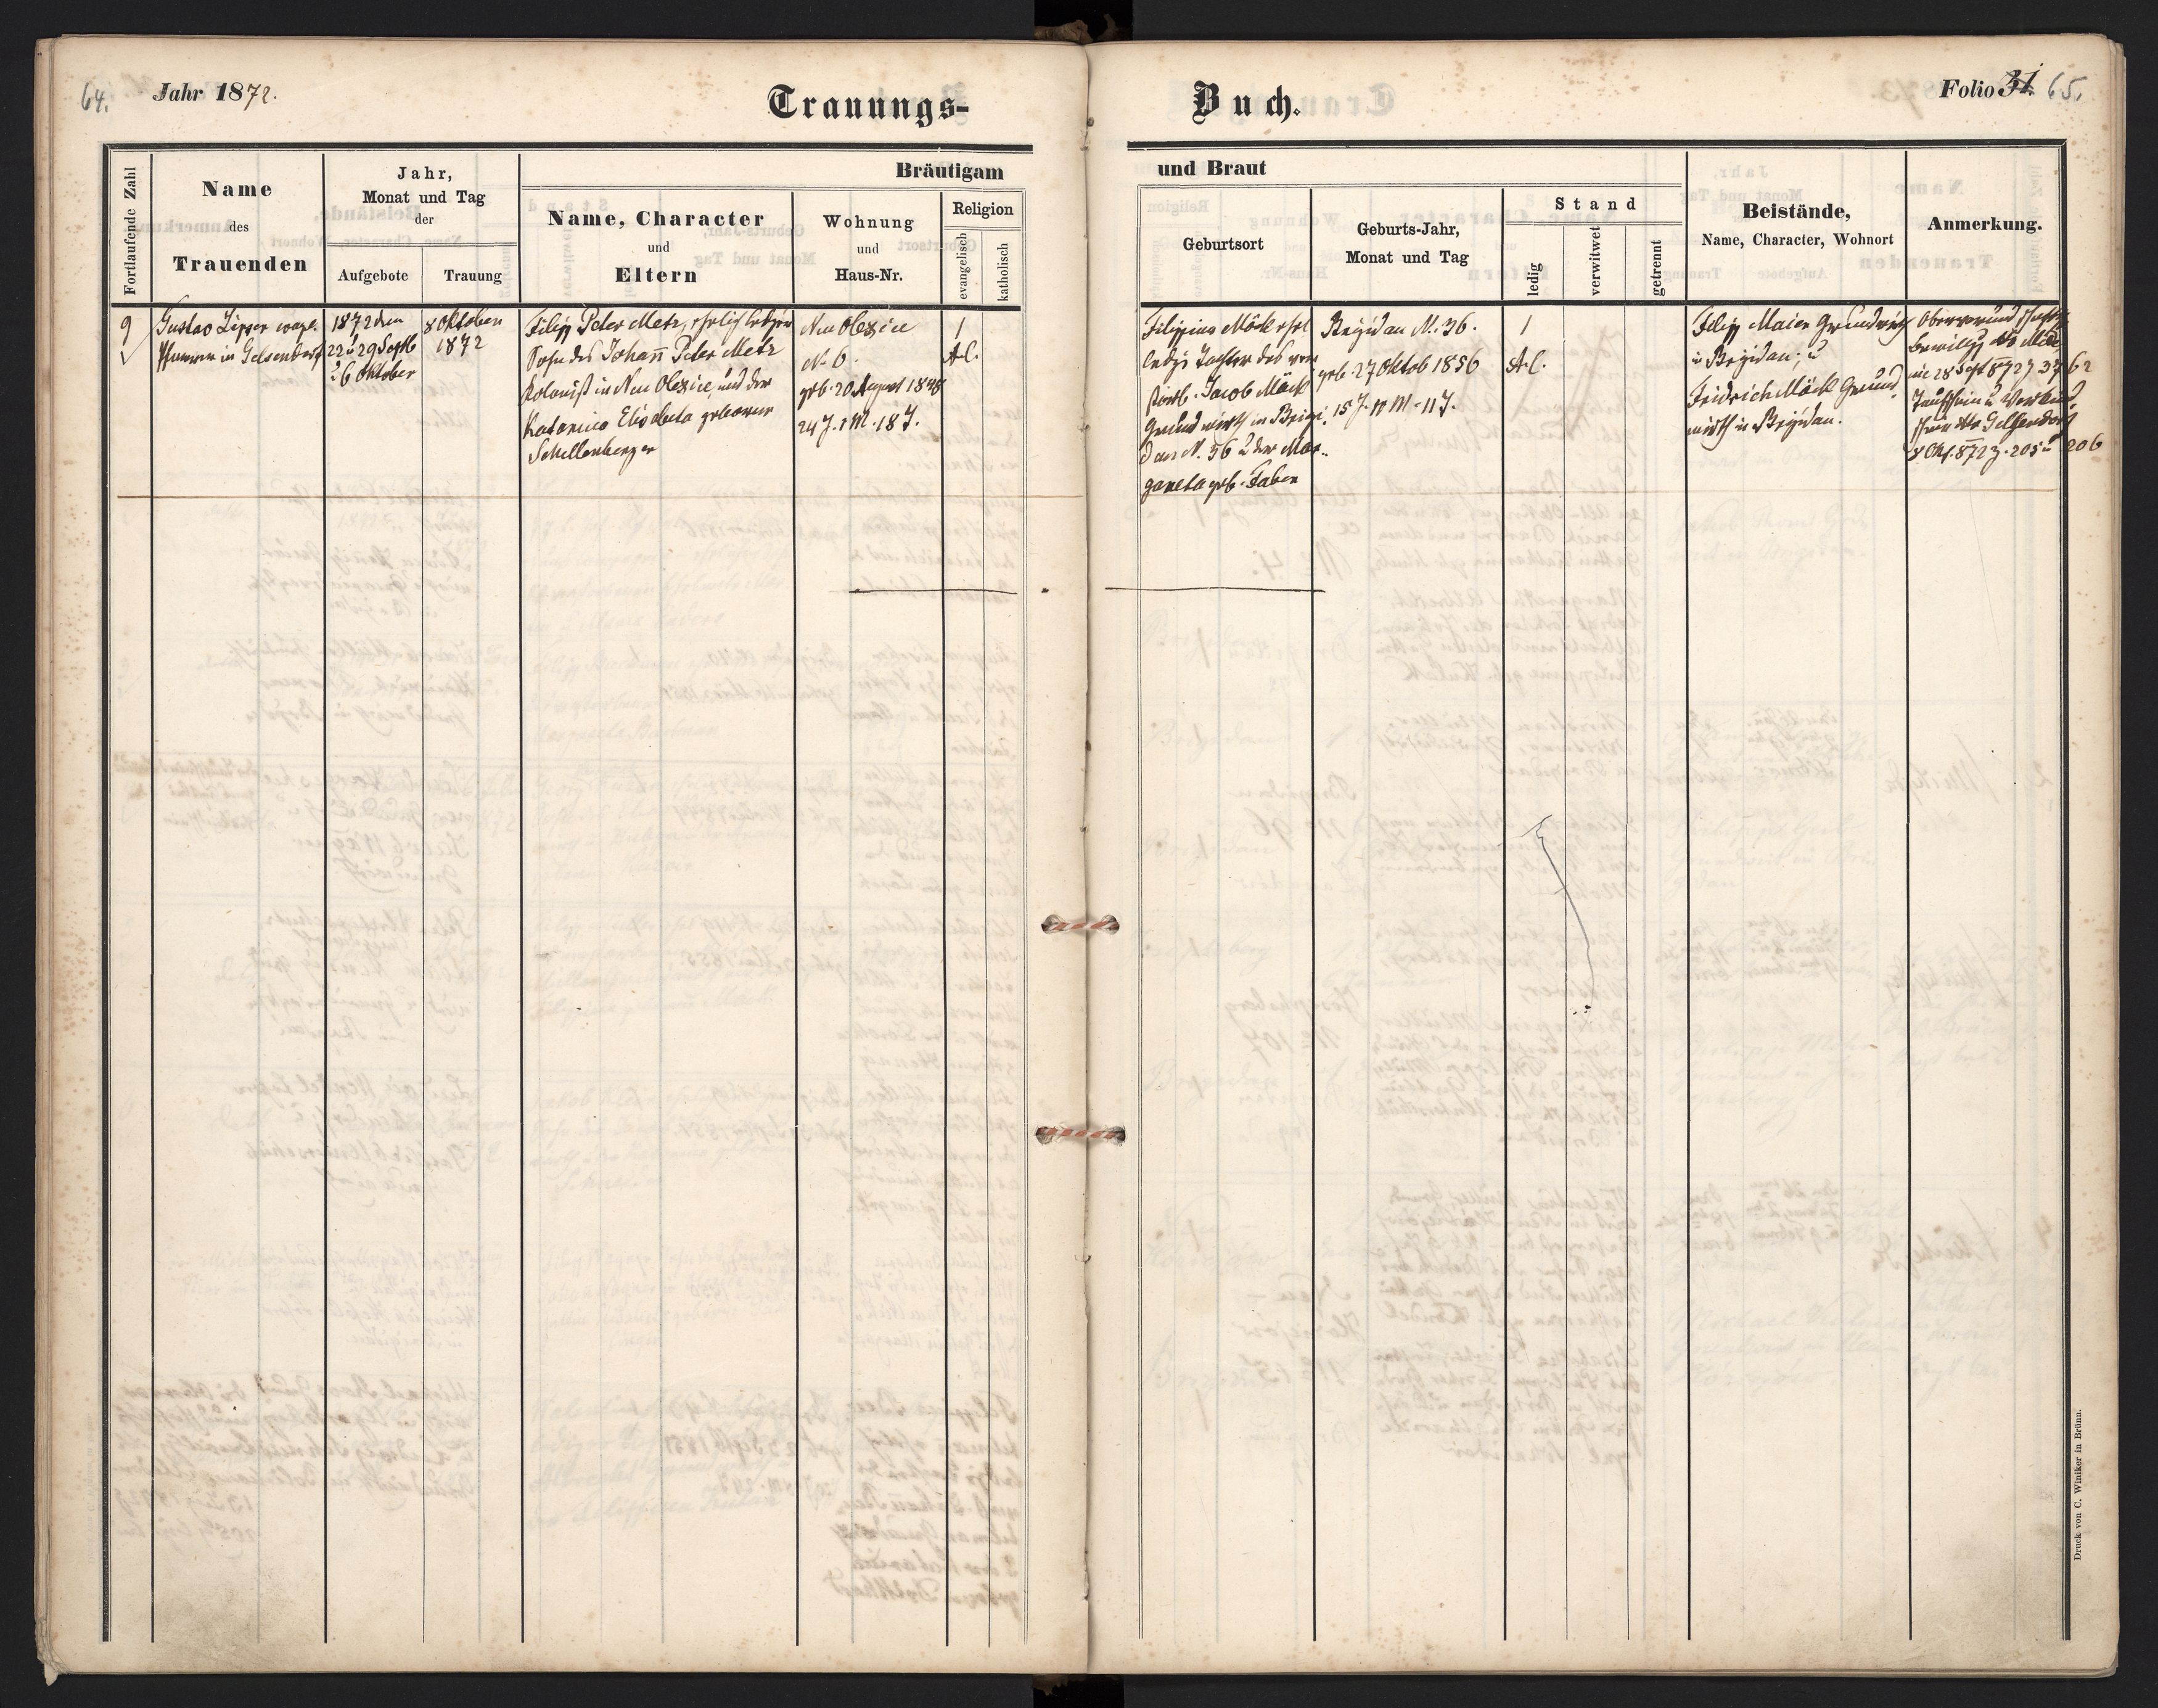 64.
Jahr 1872.
Trauungs-
Buch.
Folio 31 65.
Fortlaufende Zahl
Name
des
Trauenden
Jahr,
Monat und Tag
der
Aufgebote
Trauung
Bräutigam
Name, Character
und
Eltern
Wohnung
und
Haus-Nr.
Religion
evangelisch
katholisch
und Braut
Geburtsort
Geburts-Jahr,
Monat und Tag
Stand
ledig
verwitwet
getrennt
Beistände,
Name, Character, Wohnort
Anmerkung.
9
Gustav Lipser evgl.
Pfarrer in Gelsendorf
1872 den
22 u 29 Septb
u 6 Oktober
8 Oktober
1872
Filipp Peter Metz, ehelich lediger
Sohn des Johañ Peter Metz
Kolonist in Neu Olexice, und der
Katarina Elisabeta geborner
Schellenberger
Neu Olexice
N. 6.
geb. 20 August 1848
24 J. 1 M. 18 T.
1
A.C.
Filippina Möck ehel
ledige Tochter des ver
storb. Jacob Möck
Grundwirth in Brigi-
dau N. 36 u der Mar-
gareta geb. Faber
Brigidau N. 36.
geb. 27 Oktob 1856
15 J. 11 M. 11 T.
1
A.C.
Filipp Maier Grundwirth
in Brigidau; u
Fridrich Möck Grund-
wirth in Brigidau.
28 Sept 872 Z 3762
Taufschein u
Gelsendorf
8 Okt. 872 Z. 205 u 206
Druck von C. Winiker in Brünn.